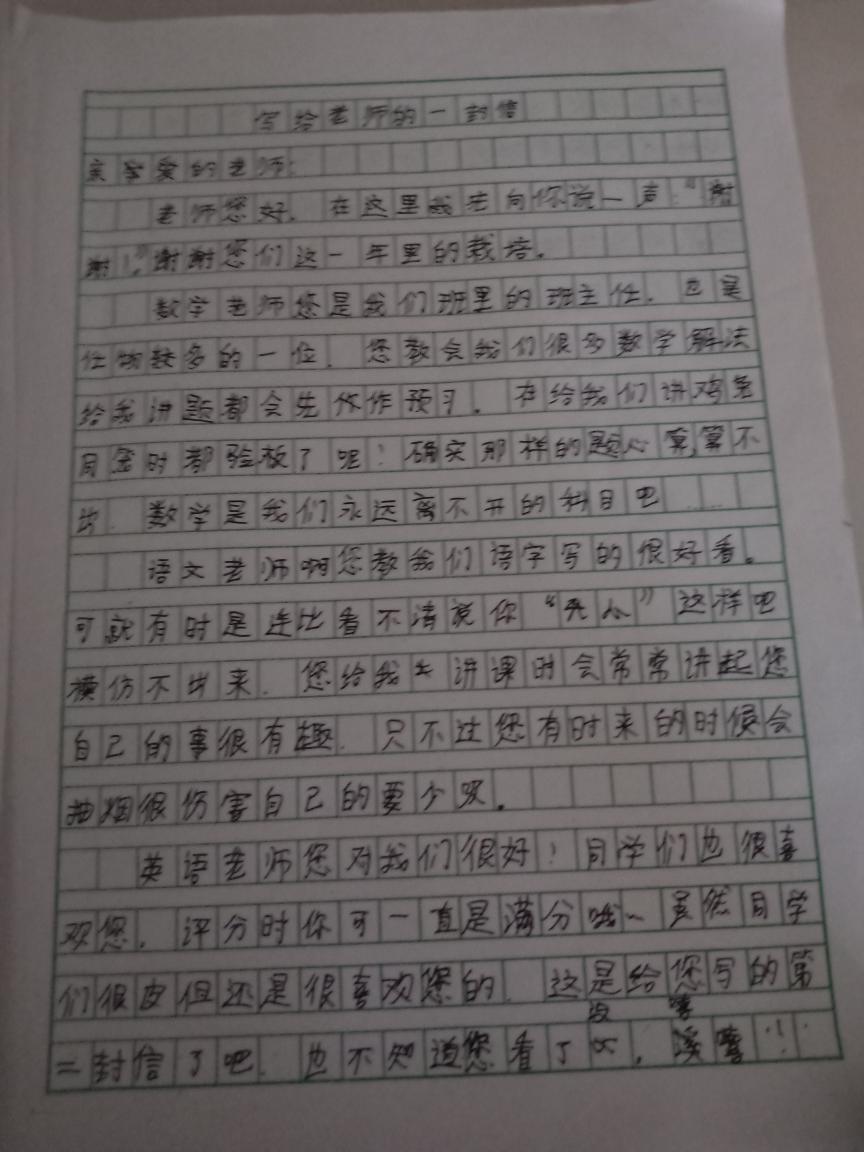 写给老师的一封信
亲爱的老师:
老师您好。在这里我先向你说一声:“谢
谢!”谢谢您们这一年里的栽培。
数学老师您是我们班里的班主任。也是
任物较多的一位。您教会我们很多数学解法
给我讲题都会先作预习。在给我们讲鸡兔
同笼时都验板了呢!确实那样的题心算,算不
出。数学是我们永远离不开的科目吧……
语文老师啊您教我们语字写的很好看。
可就有时是连比看不清说你“ ”这样吧
模仿不出来。您给我们讲课时会常常讲起您
自己的事很有趣。只不过您有时来的时候会
抽烟很伤害自己的要少吸。
英语老师您对我们很好!同学们也很喜
欢您。评分时你可一直是满分哦~虽然同学
们很皮但还是很喜欢您的。这是给您写的第
二封信了吧。也不知道您看了没,嘻嘻!!